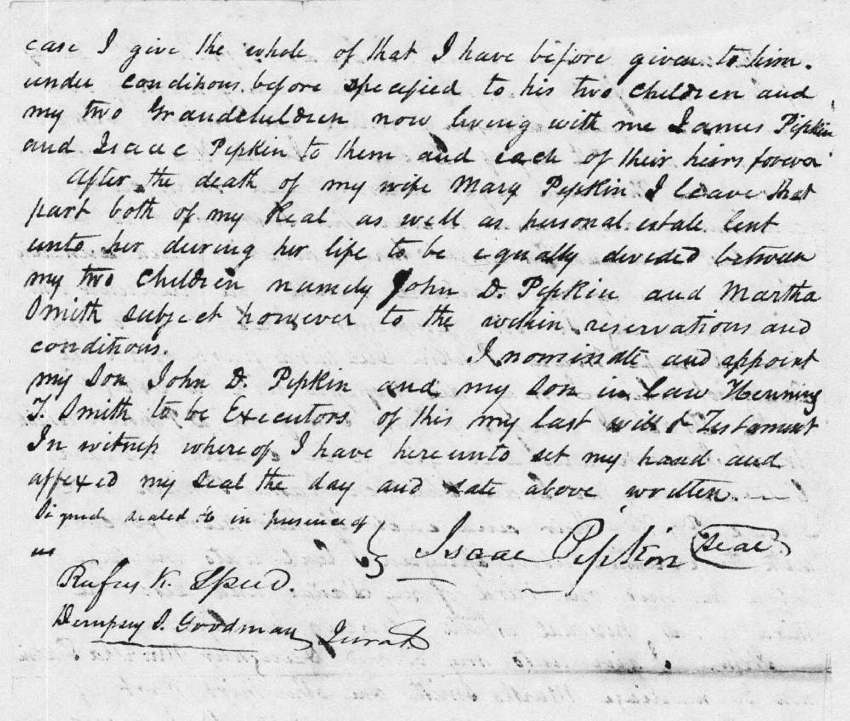 case I give the whole of that I have before given to him.
under conditions before specified to his two children and
my two Grandchildren now living with me James Pipkin
and Isaac Pipkin to them and each of their heirs forever
After the death of my wife Mary Pipkin I leave that
part both of my Real as well as personal estate lent
unto her during her life to be equally divided between
my two children namely John D. Pipkin and Martha
Smith subject however to the within reservations and
conditions. I nominate and appoint
my Son John D. Pipkin and my Son in Law Henning
T. Smith to be Executors of this my last will & Testament
In witness whereof I have hereunto set my hand and
affixed my seal the day and date above written.
Signed sealed &c in presence of
us
Isaac Pipkin seal
Rufus K. Speed.
Dempsey S. Goodman Jurat